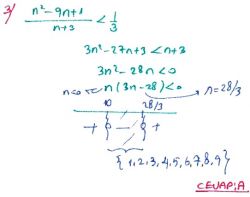 3) n² - 9n + 1 / n + 3 < 1/3
3n² - 27n + 3 < n + 3
3n² - 28n < 0
n(3n - 28) < 0 n = 28/3
0 28/3
+ - +
{1,2,3,4,5,6,7,8,9}
CEVAP: A